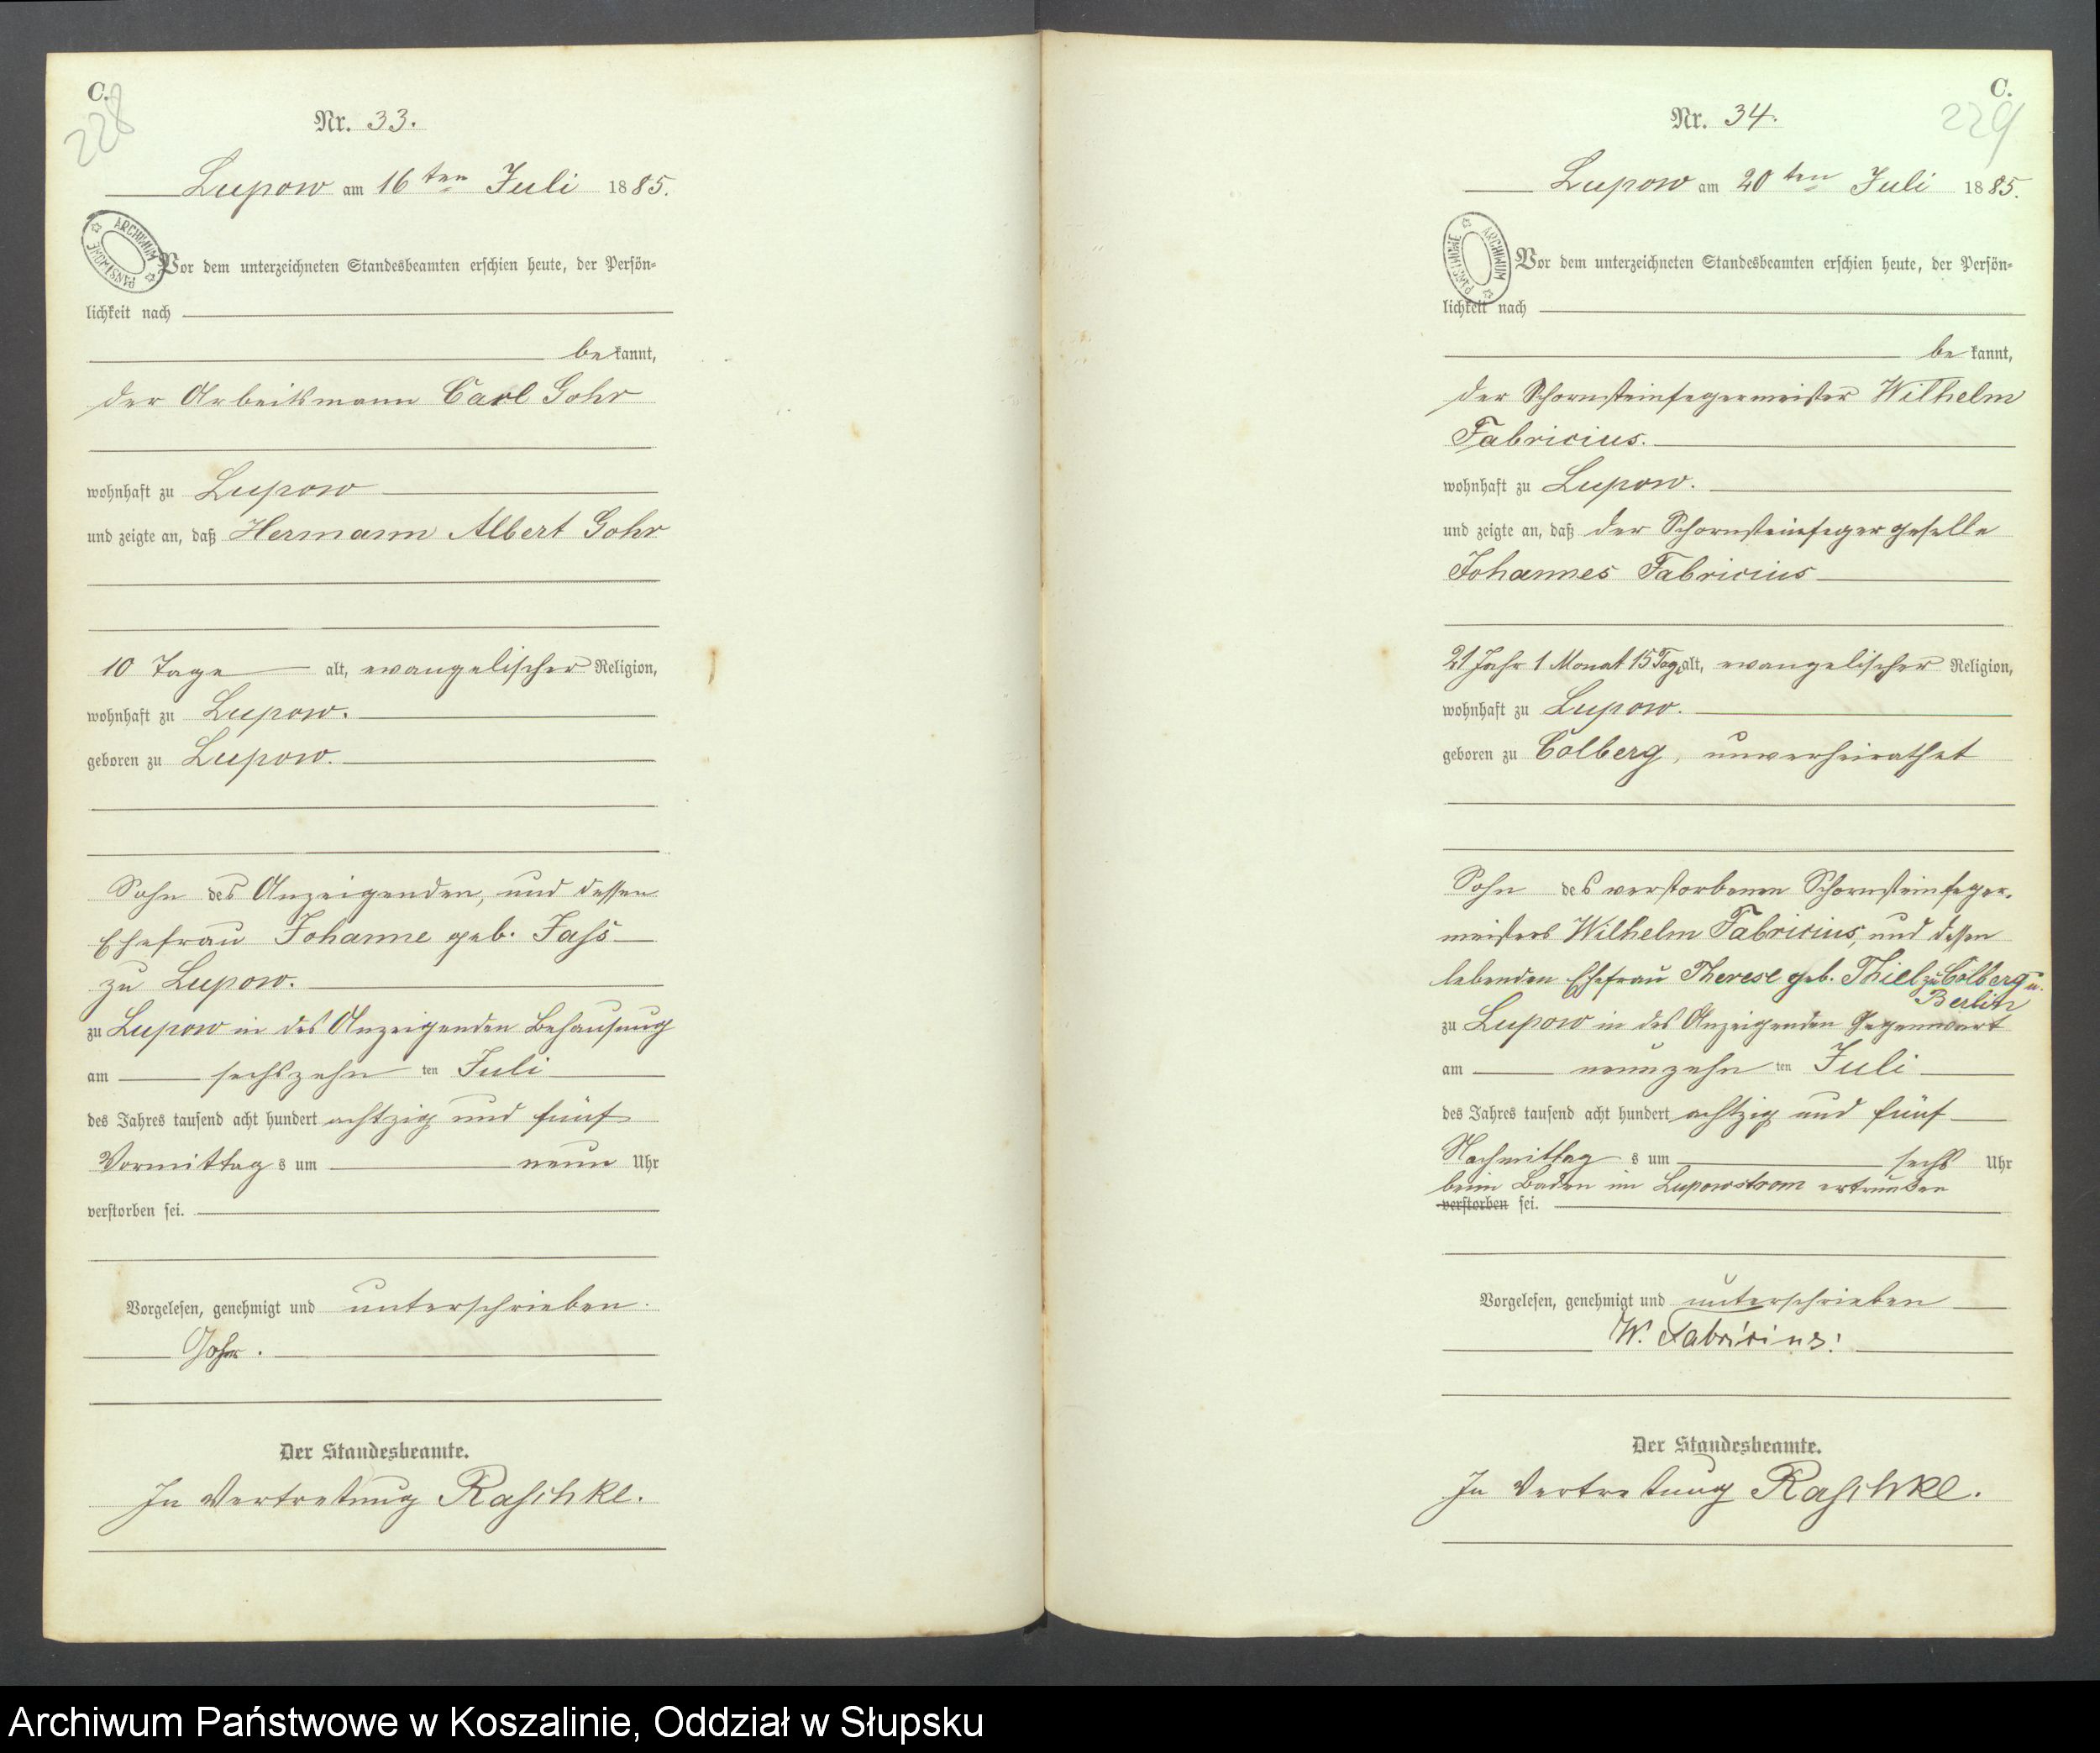 C.
228
Nr. 33.
Lupow am 16ten Juli 1885.
ARCHIWUM PAŃSTWOWE
Vor dem unterzeichneten Standesbeamten erschien heute, der Persön=
lichkeit nach
bekannt,
der Arbeitsmann Carl Gohr
wohnhaft zu Lupow
und zeigte an, daß Hermann Albert Gohr
10 Tage alt, evangelischer Religion,
wohnhaft zu Lupow.
geboren zu Lupow.
Sohn des Anzeigenden, und dessen
Ehefrau Johanne geb. Jass
zu Lupow.
zu Lupow in des Anzeigenden Behausung
am sechszehn ten Juli
des Jahres tausend acht hundert achtzig und fünf
Vormittags um neun Uhr
verstorben sei.
Vorgelesen, genehmigt und unterschrieben.
Gohr.
Der Standesbeamte.
In Vertretung Raschke.
C.
229
Nr. 34.
Lupow am 20ten Juli 1885.
ARCHIWUM PAŃSTWOWE
Vor dem unterzeichneten Standesbeamten erschien heute, der Persön=
lichkeit nach
bekannt,
der Schornsteinfegermeister Wilhelm
Fabricius.
wohnhaft zu Lupow.
und zeigte an, daß der Schornsteinfegergeselle
Johannes Fabricius
21 Jahr 1 Monat 15 Tage alt, evangelischer Religion,
wohnhaft zu Lupow.
geboren zu Colberg, unverheirathet
Sohn des verstorbenen Schornsteinfeger-
meisters Wilhelm Fabricius, und dessen
lebenden Ehefrau Therese geb. Thiel zu Colberg u.
Berlin
zu Lupow in des Anzeigenden Gegenwart
am neunzehn ten Juli
des Jahres tausend acht hundert achtzig und fünf
Nachmittags um sechs Uhr
beim Baden im Lupowstrom ertrunken
verstorben sei.
Vorgelesen, genehmigt und unterschrieben
W. Fabricius.
Der Standesbeamte.
In Vertretung Raschke.
Archiwum Państwowe w Koszalinie, Oddział w Słupsku